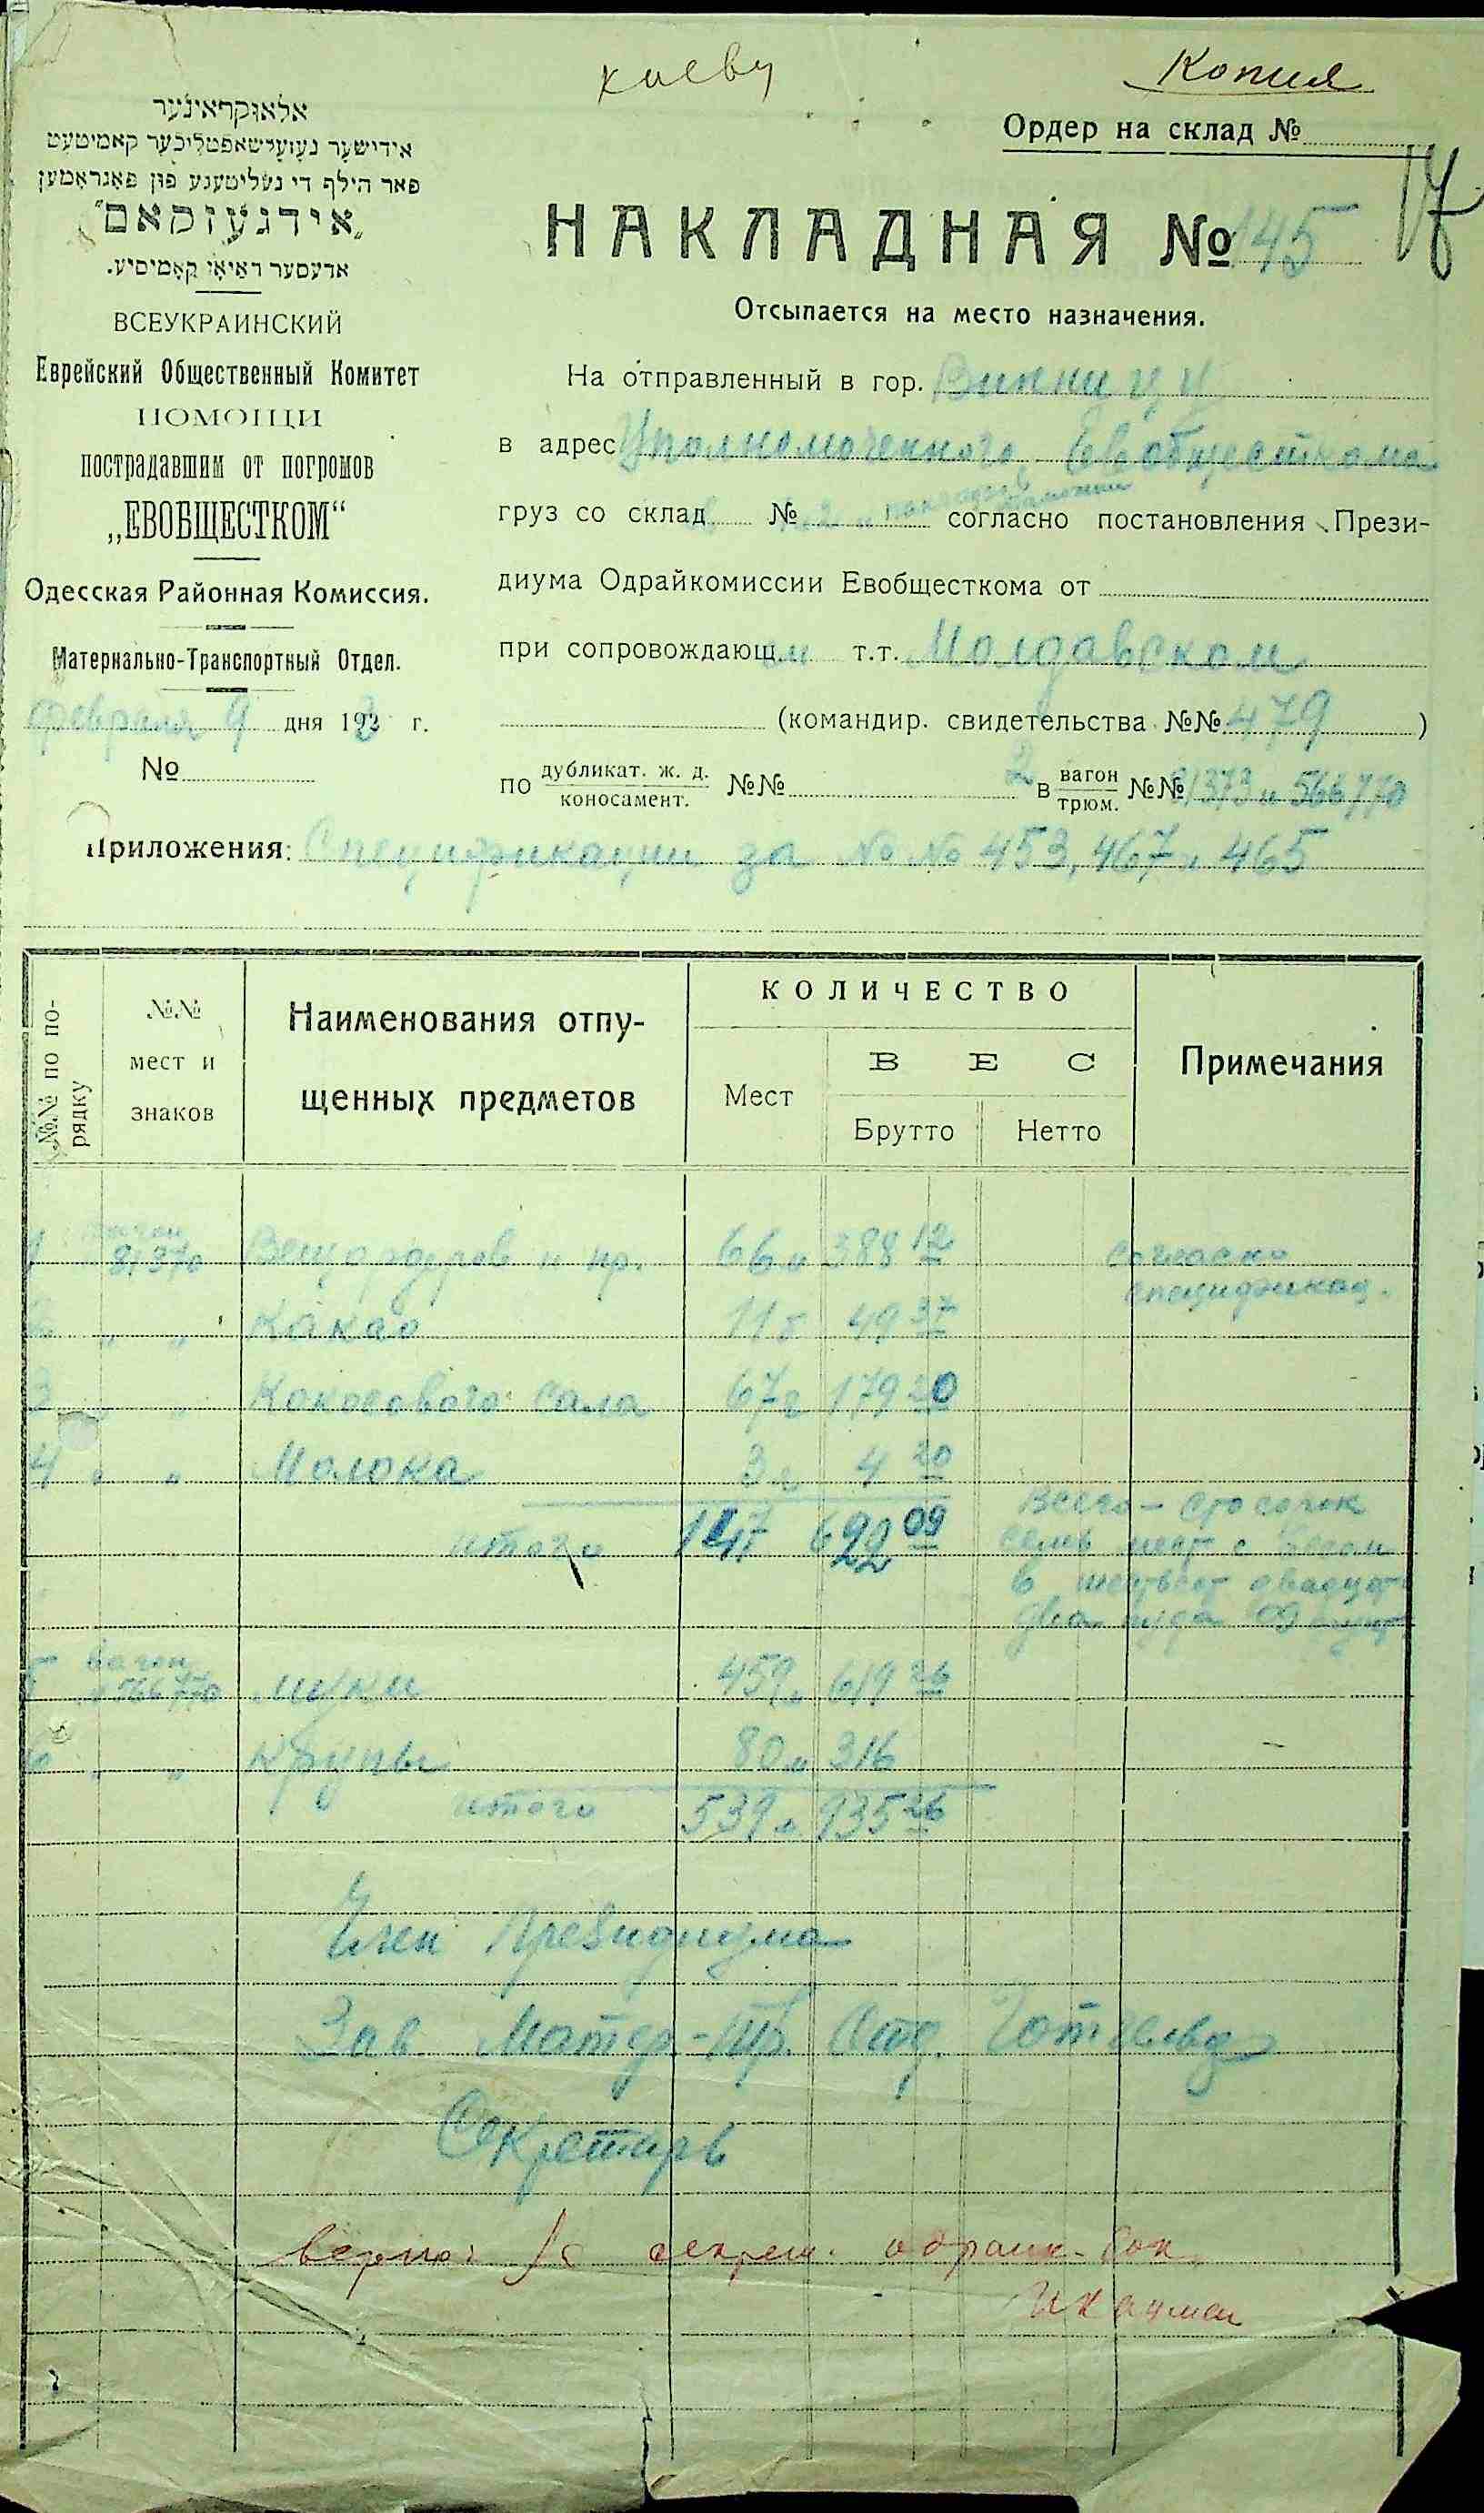 Киеву
Копия
Ордер на склад №
17
אלאוקראינער
אידישער געזעלשאפטליכער קאמיטעט
פאר הילף די געליטענע פון פאגראמען
„אידגעזקאם"
אדעסער ראיאן קאמיסיע.
ВСЕУКРАИНСКИЙ
Еврейский Общественный Комитет
ПОМОЩИ
ПОСТРАДАВШИМ ОТ ПОГРОМОВ
„ЕВОБЩЕСТКОМ“
Одесская Районная Комиссия.
Материально-Транспортный Отдел.
февраля 9 дня 192 г.
№
НАКЛАДНАЯ № 145
Отсыпается на место назначения.
На отправленный в гор. Винницу
в адрес Уполномоченного Евобщесткома
груз со склад № согласно постановления Прези-
диума Одрайкомиссии Евобщесткома от
при сопровождающ.ем т.т. Молдавском
(командир. свидетельства №№ 479 )
по дубликат. ж. д. коносамент. №№ 2 в вагон трюм. №№ 81373 и 566770
Приложения: Спецификации за №№ 453, 467 и 465
№№ по по-
рядку
№№
мест и
знаков
Наименования отпу-
щенных предметов
КОЛИЧЕСТВО
Мест
ВЕС
Брутто
Нетто
Примечания
1 вагон 81370 Вещ и пр. 66 м 388 12 согласно
спецификац.
2 " " Какао 11 49 37
3 " " Кокосового сала 67 179 20
4 " " Молока 3 4 20
итого 147 622 09
Всего – сто сорок
семь мест с весом
в шестьсот двадцат
два пуда 09 фунт
5 вагон 566770 муки 459 м 619 26
6 " " крупы 80 м 316
итого 539 м 935 26
Член Президиума
Зав. Матер-тр. Отд. Готлибер
Секретарь
верно: секрет. одраик-